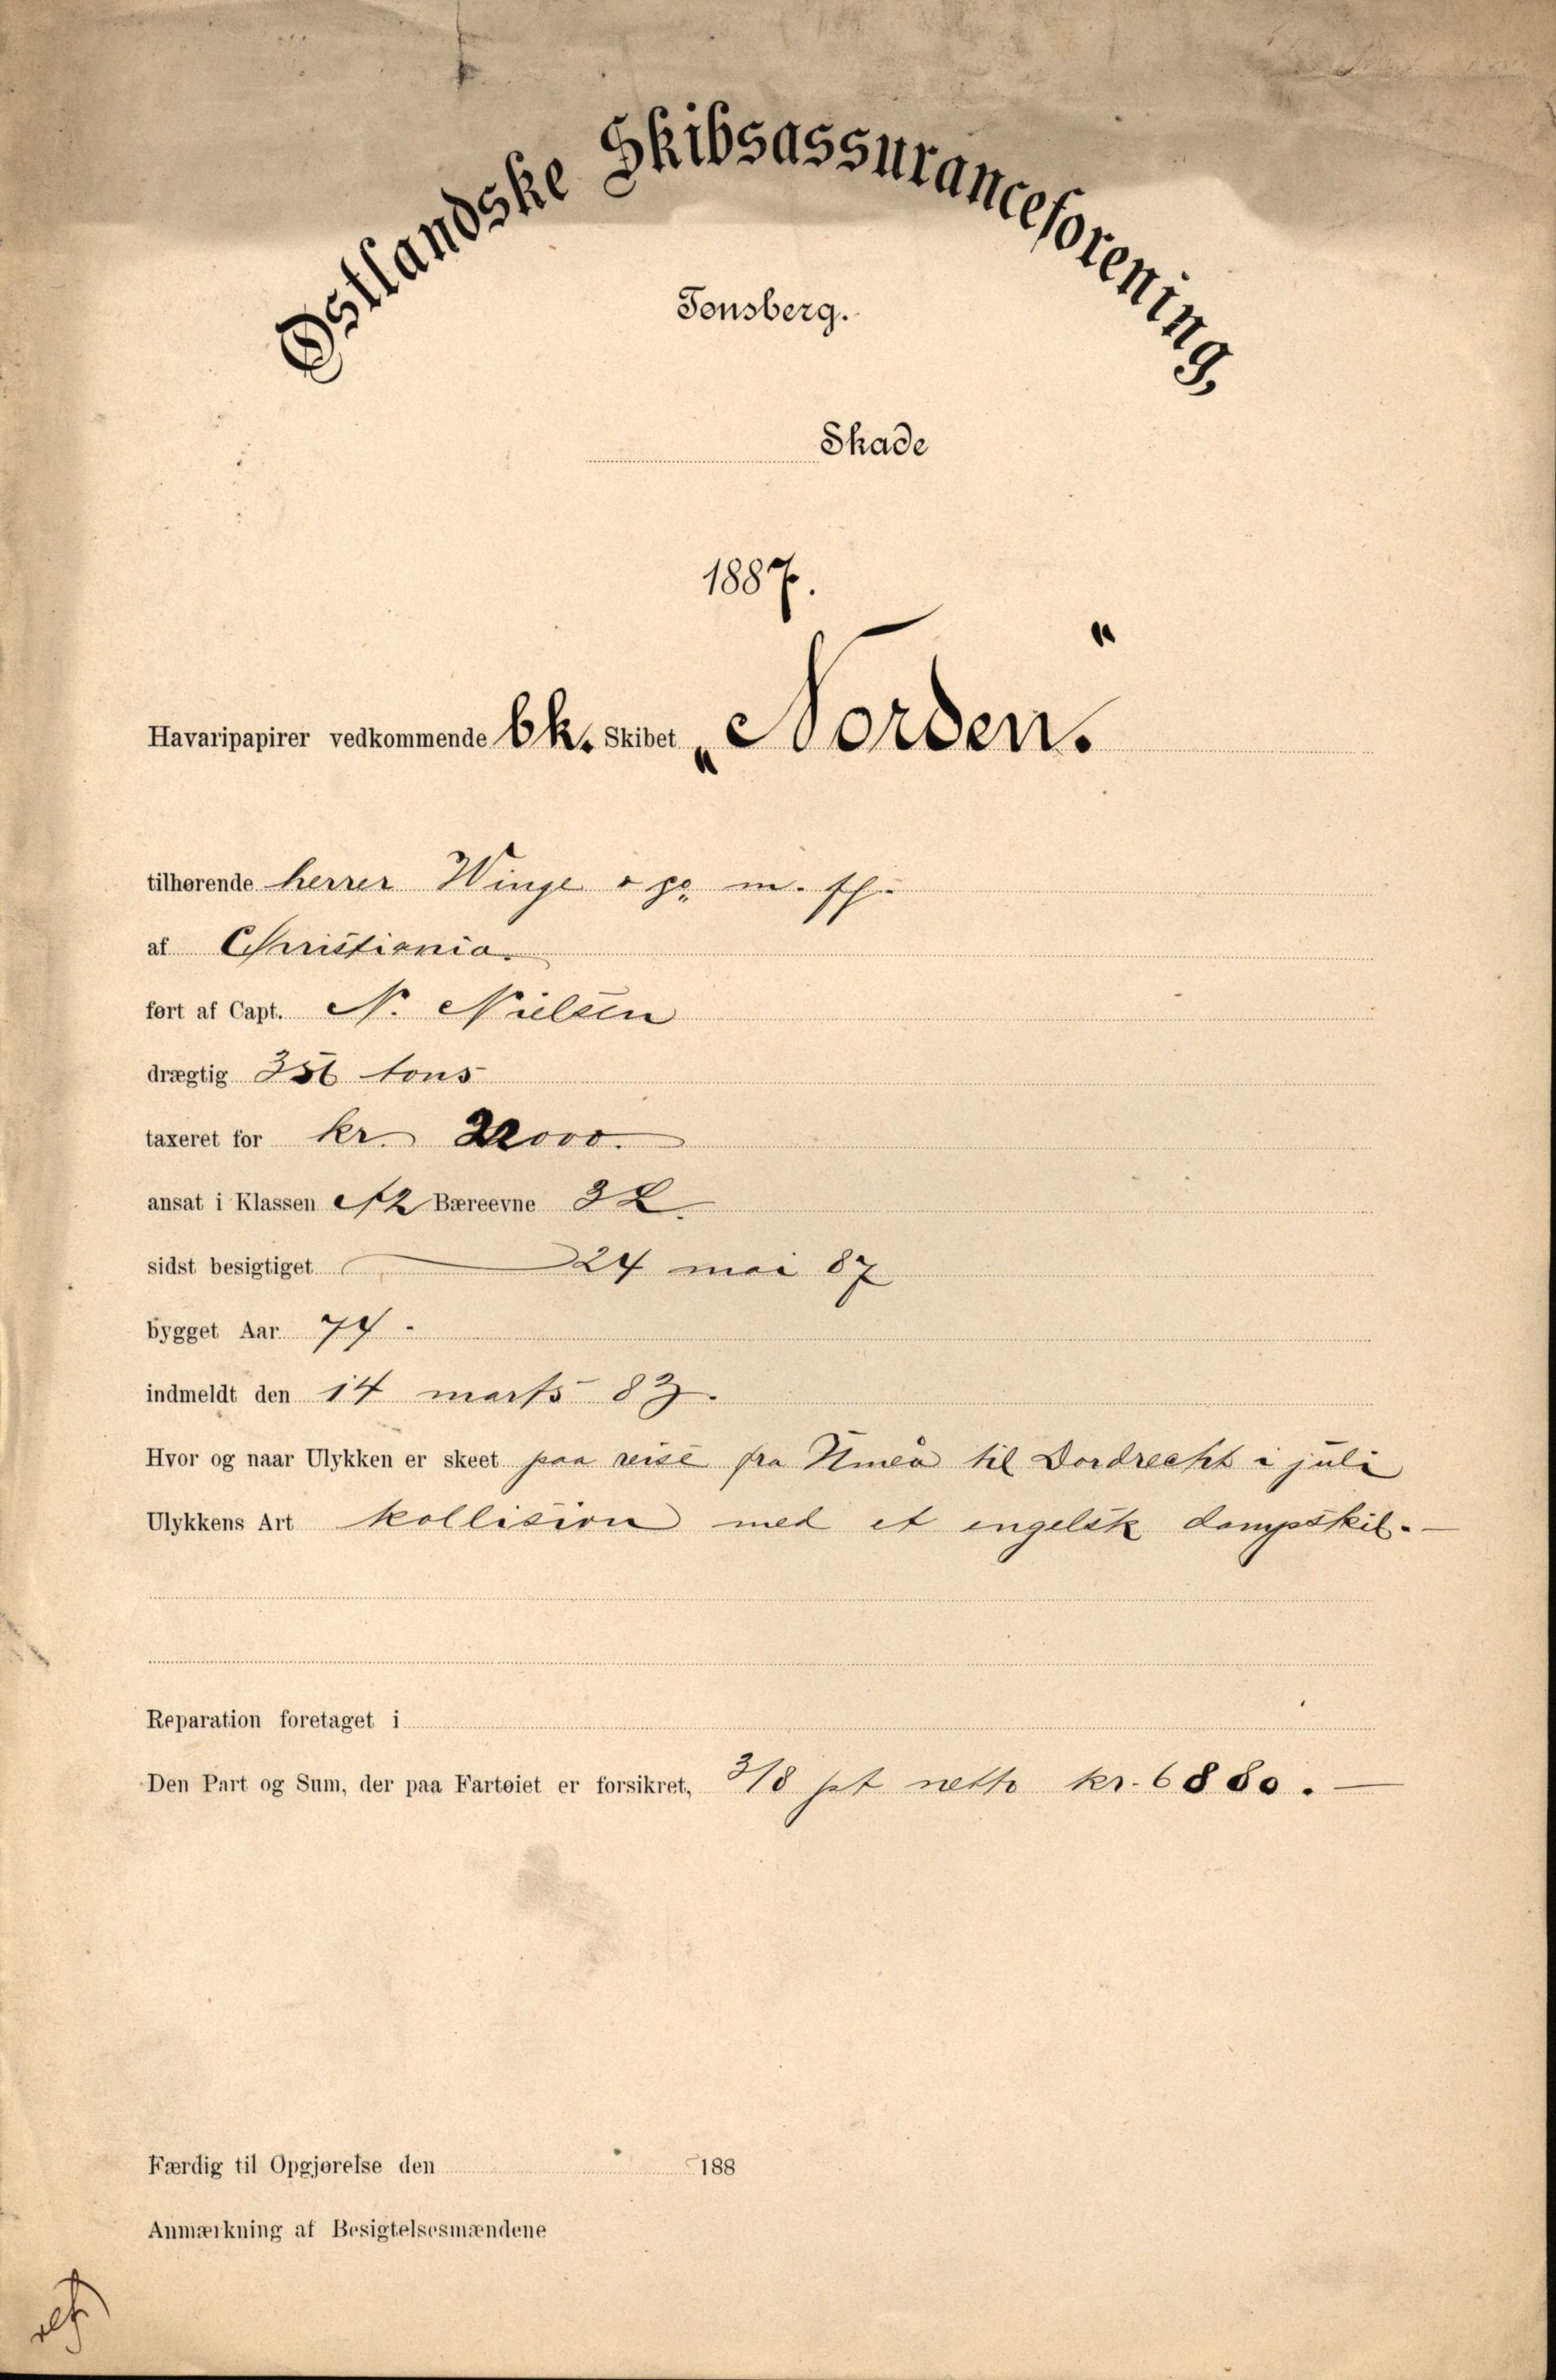 Østlandske Skibsassuranceforening,
Tønsberg.
Skade
1887.
Havaripapirer vedkommende bk. Skibet „Norden.“
tilhørende herrer Winge & Co. m. fl.
af Christiania
ført af Capt. N. Nielsen
drægtig 356 tons
taxeret for kr. 22000.
ansat i Klassen A2 Bæreevne 3 L
sidst besigtiget 24 mai 87
bygget Aar 74 -
indmeldt den 14 marts 83.
Hvor og naar Ulykken er skeet paa reise fra Umeå til Dordrecht i juli
Ulykkens Art kollision med et engelsk dampskib. —
Reparation foretaget i
Den Part og Sum, der paa Fartøiet er forsikret, 3/8 pt netto kr. 6880. —
Færdig til Opgjørelse den 188
Anmærkning af Besigtelsesmændene